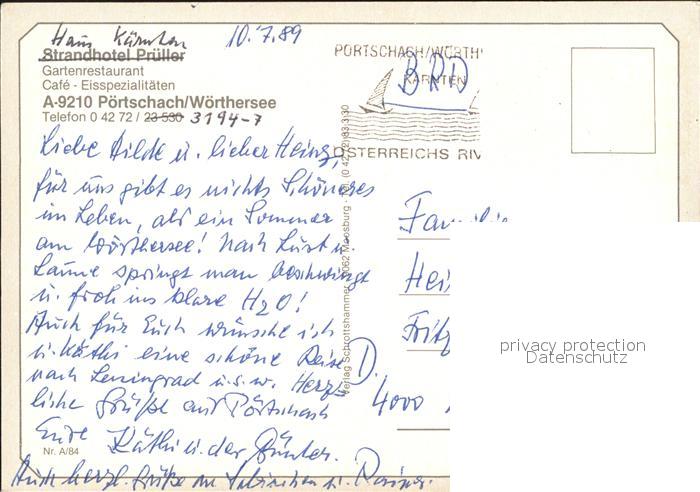 Haus Kärnten 10.7.89
Strandhotel Prüller
Gartenrestaurant
Café - Eisspezialitäten
A-9210 Pörtschach/Wörthersee
Telefon 0 42 72 / 23 530 3194-7
PÖRTSCHACH/WÖRTH
KÄRNTEN
BRD
ÖSTERREICHS RIV
Liebe Hilde u. lieber Heinz,
für uns gibt es nichts Schöneres
im Leben, als ein Sommer
am Wörthersee! Nach Lust u.
Laune springt man beschwingt
u. froh ins klare H2O!
Auch für Euch wünsche ich
u. Käthi eine schöne Reise
nach Leningrad u.s.w. Herz-
liche Grüße aus Pörtschach
Eure Käthi u. der Günter.
Auch herzl. Grüße an u. Rainer.
Nr. A/84
Verlag Schrottshammer, 9062 Moosburg - Tel. (0 42 72) 83 3 30
Familie
Hei
Fritz
D.
4000
privacy protection
Datenschutz